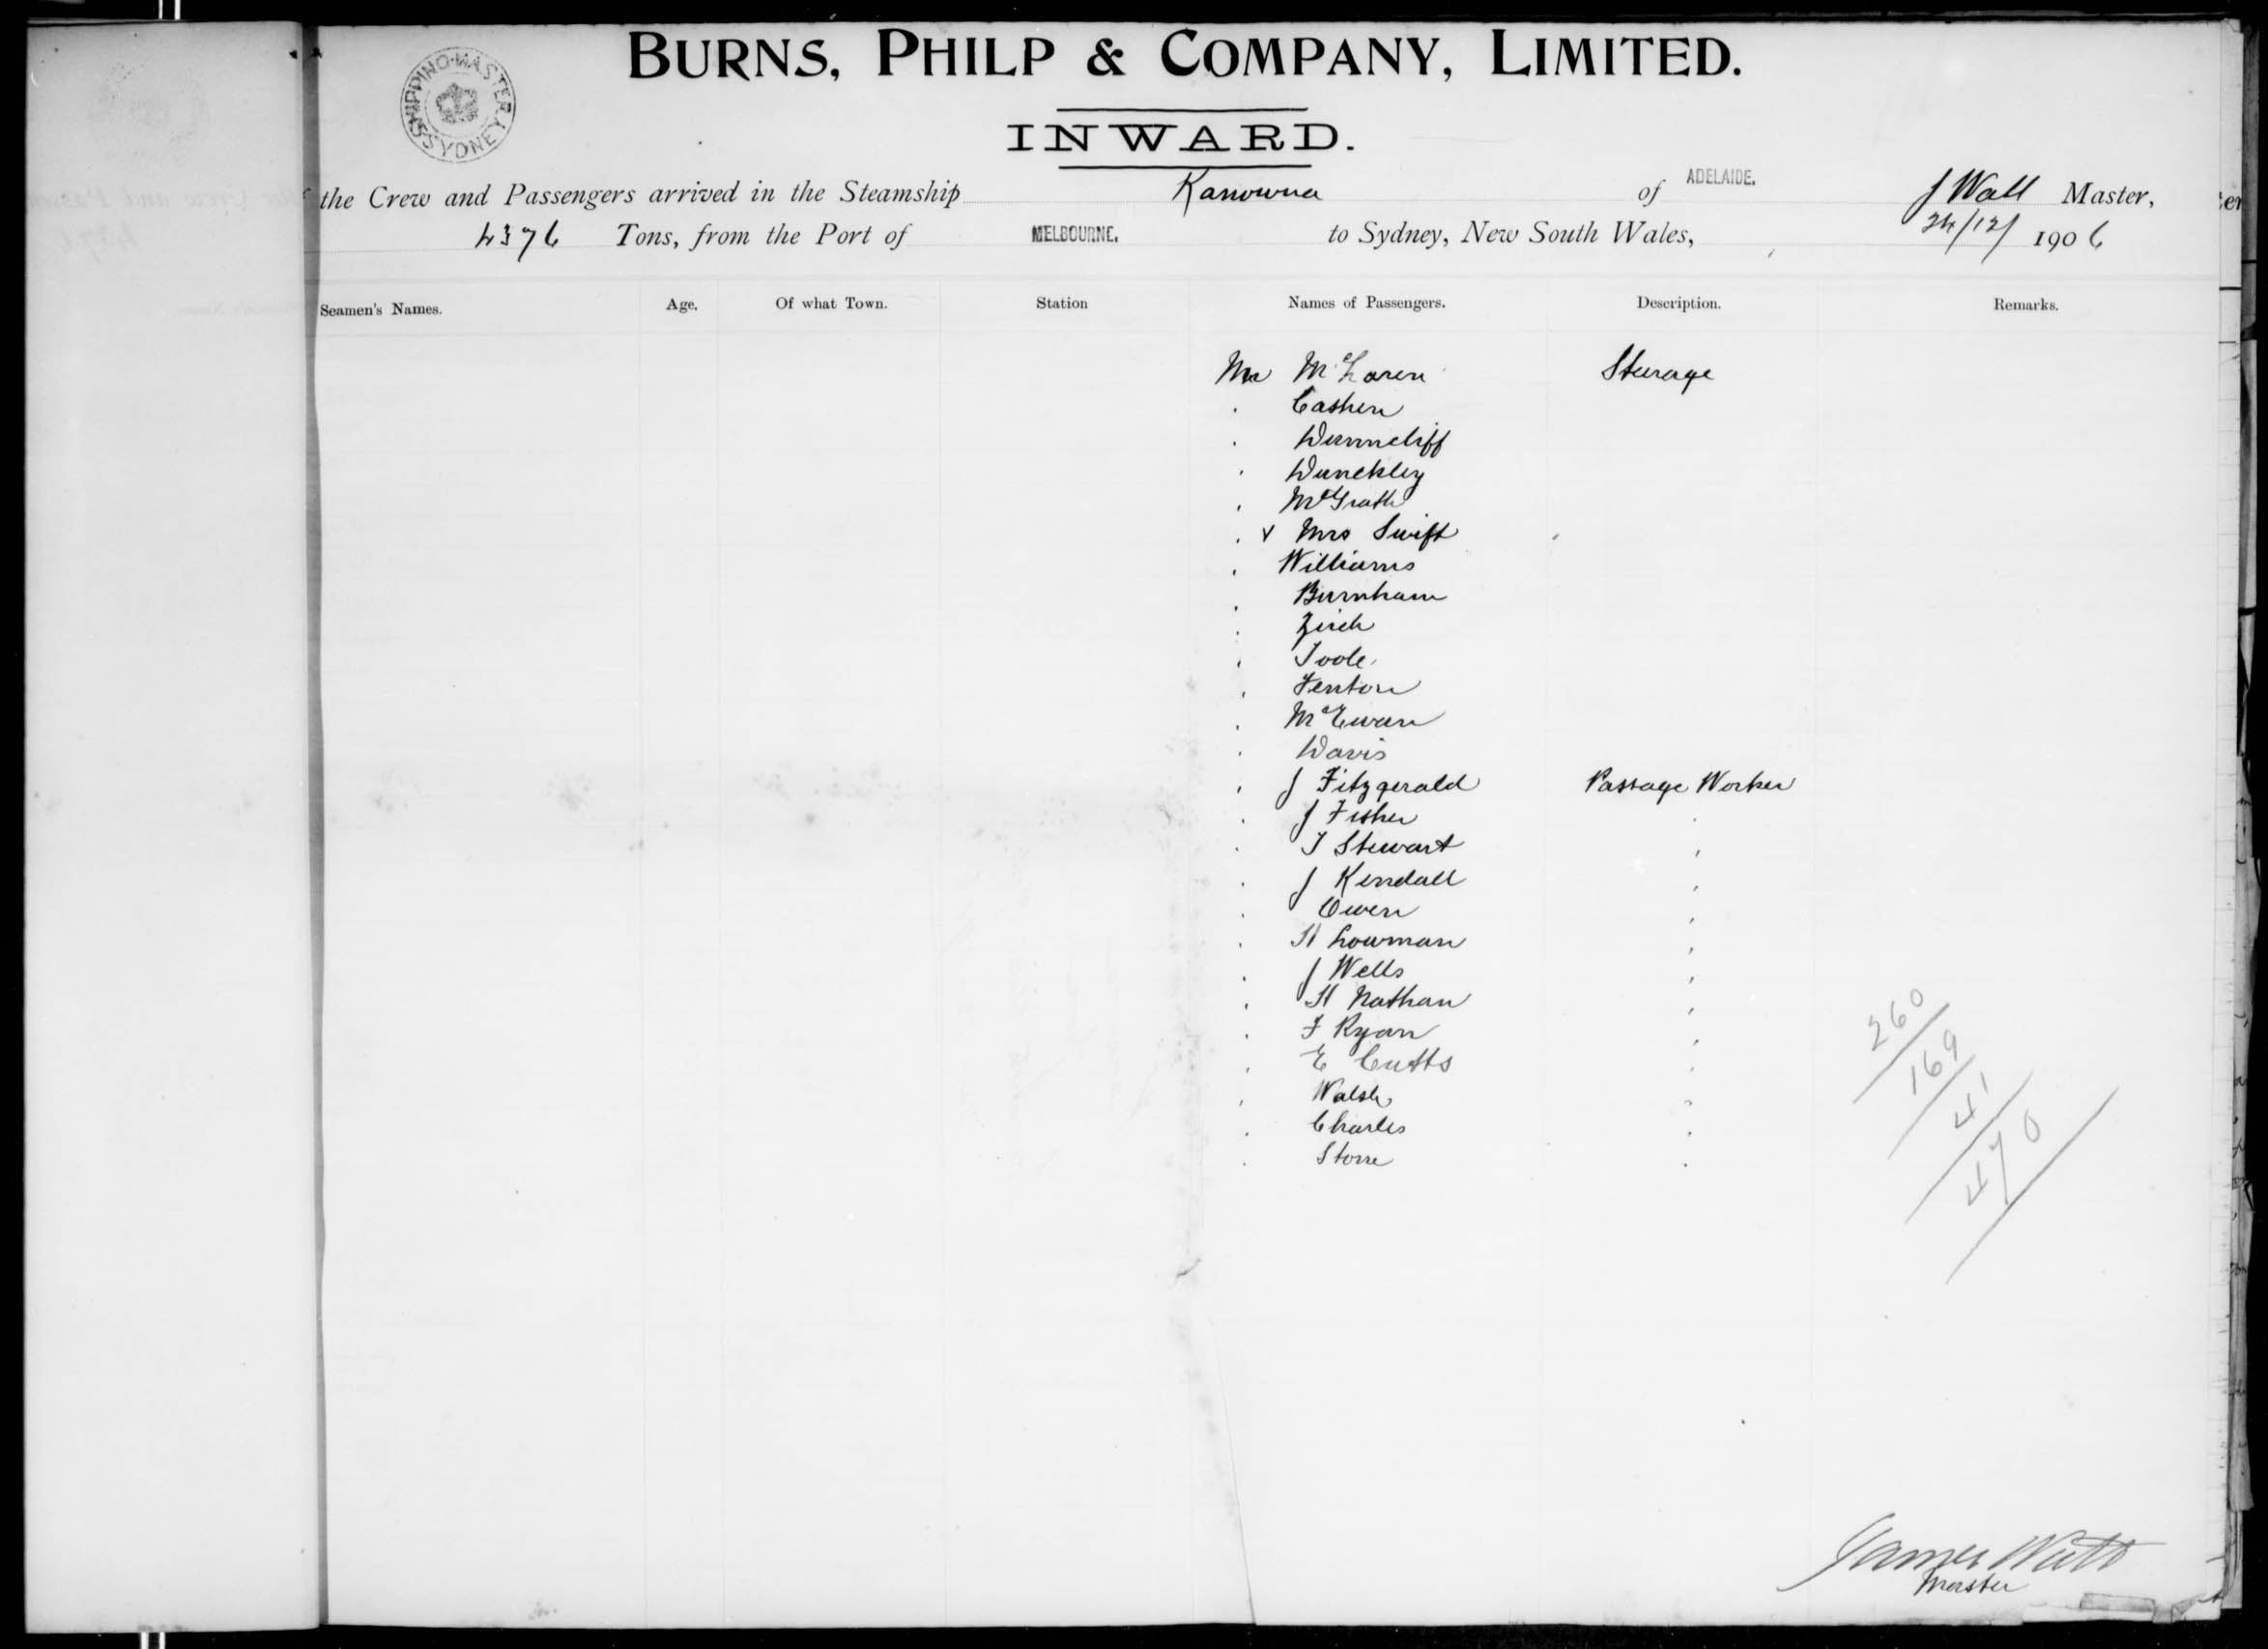 BURNS, PHILP & COMPANY, LIMITED.
SHIPPING MASTER SYDNEY
INWARD.
the Crew and Passengers arrived in the Steamship Kanowna of ADELAIDE. J Wall Master,
4376 Tons, from the Port of MELBOURNE. to Sydney, New South Wales, 24/12/ 1906
Seamen's Names. Age. Of what Town. Station Names of Passengers. Description. Remarks.
Mr McLaren Steerage
Cashen
Dunncliff
Dunckley
McGrath
& Mrs Swift
Williams
Burnham
Zirch
Toole
Fenton
McEwan
Davis
J Fitzgerald Passage Worker
J Fisher
T Stewart
J Kendall
Owen
H Lowman
J Wells
H Nathan
F Ryan
E Cutts
Walsh
Charles
Storre
260
169
41
470
James
Master